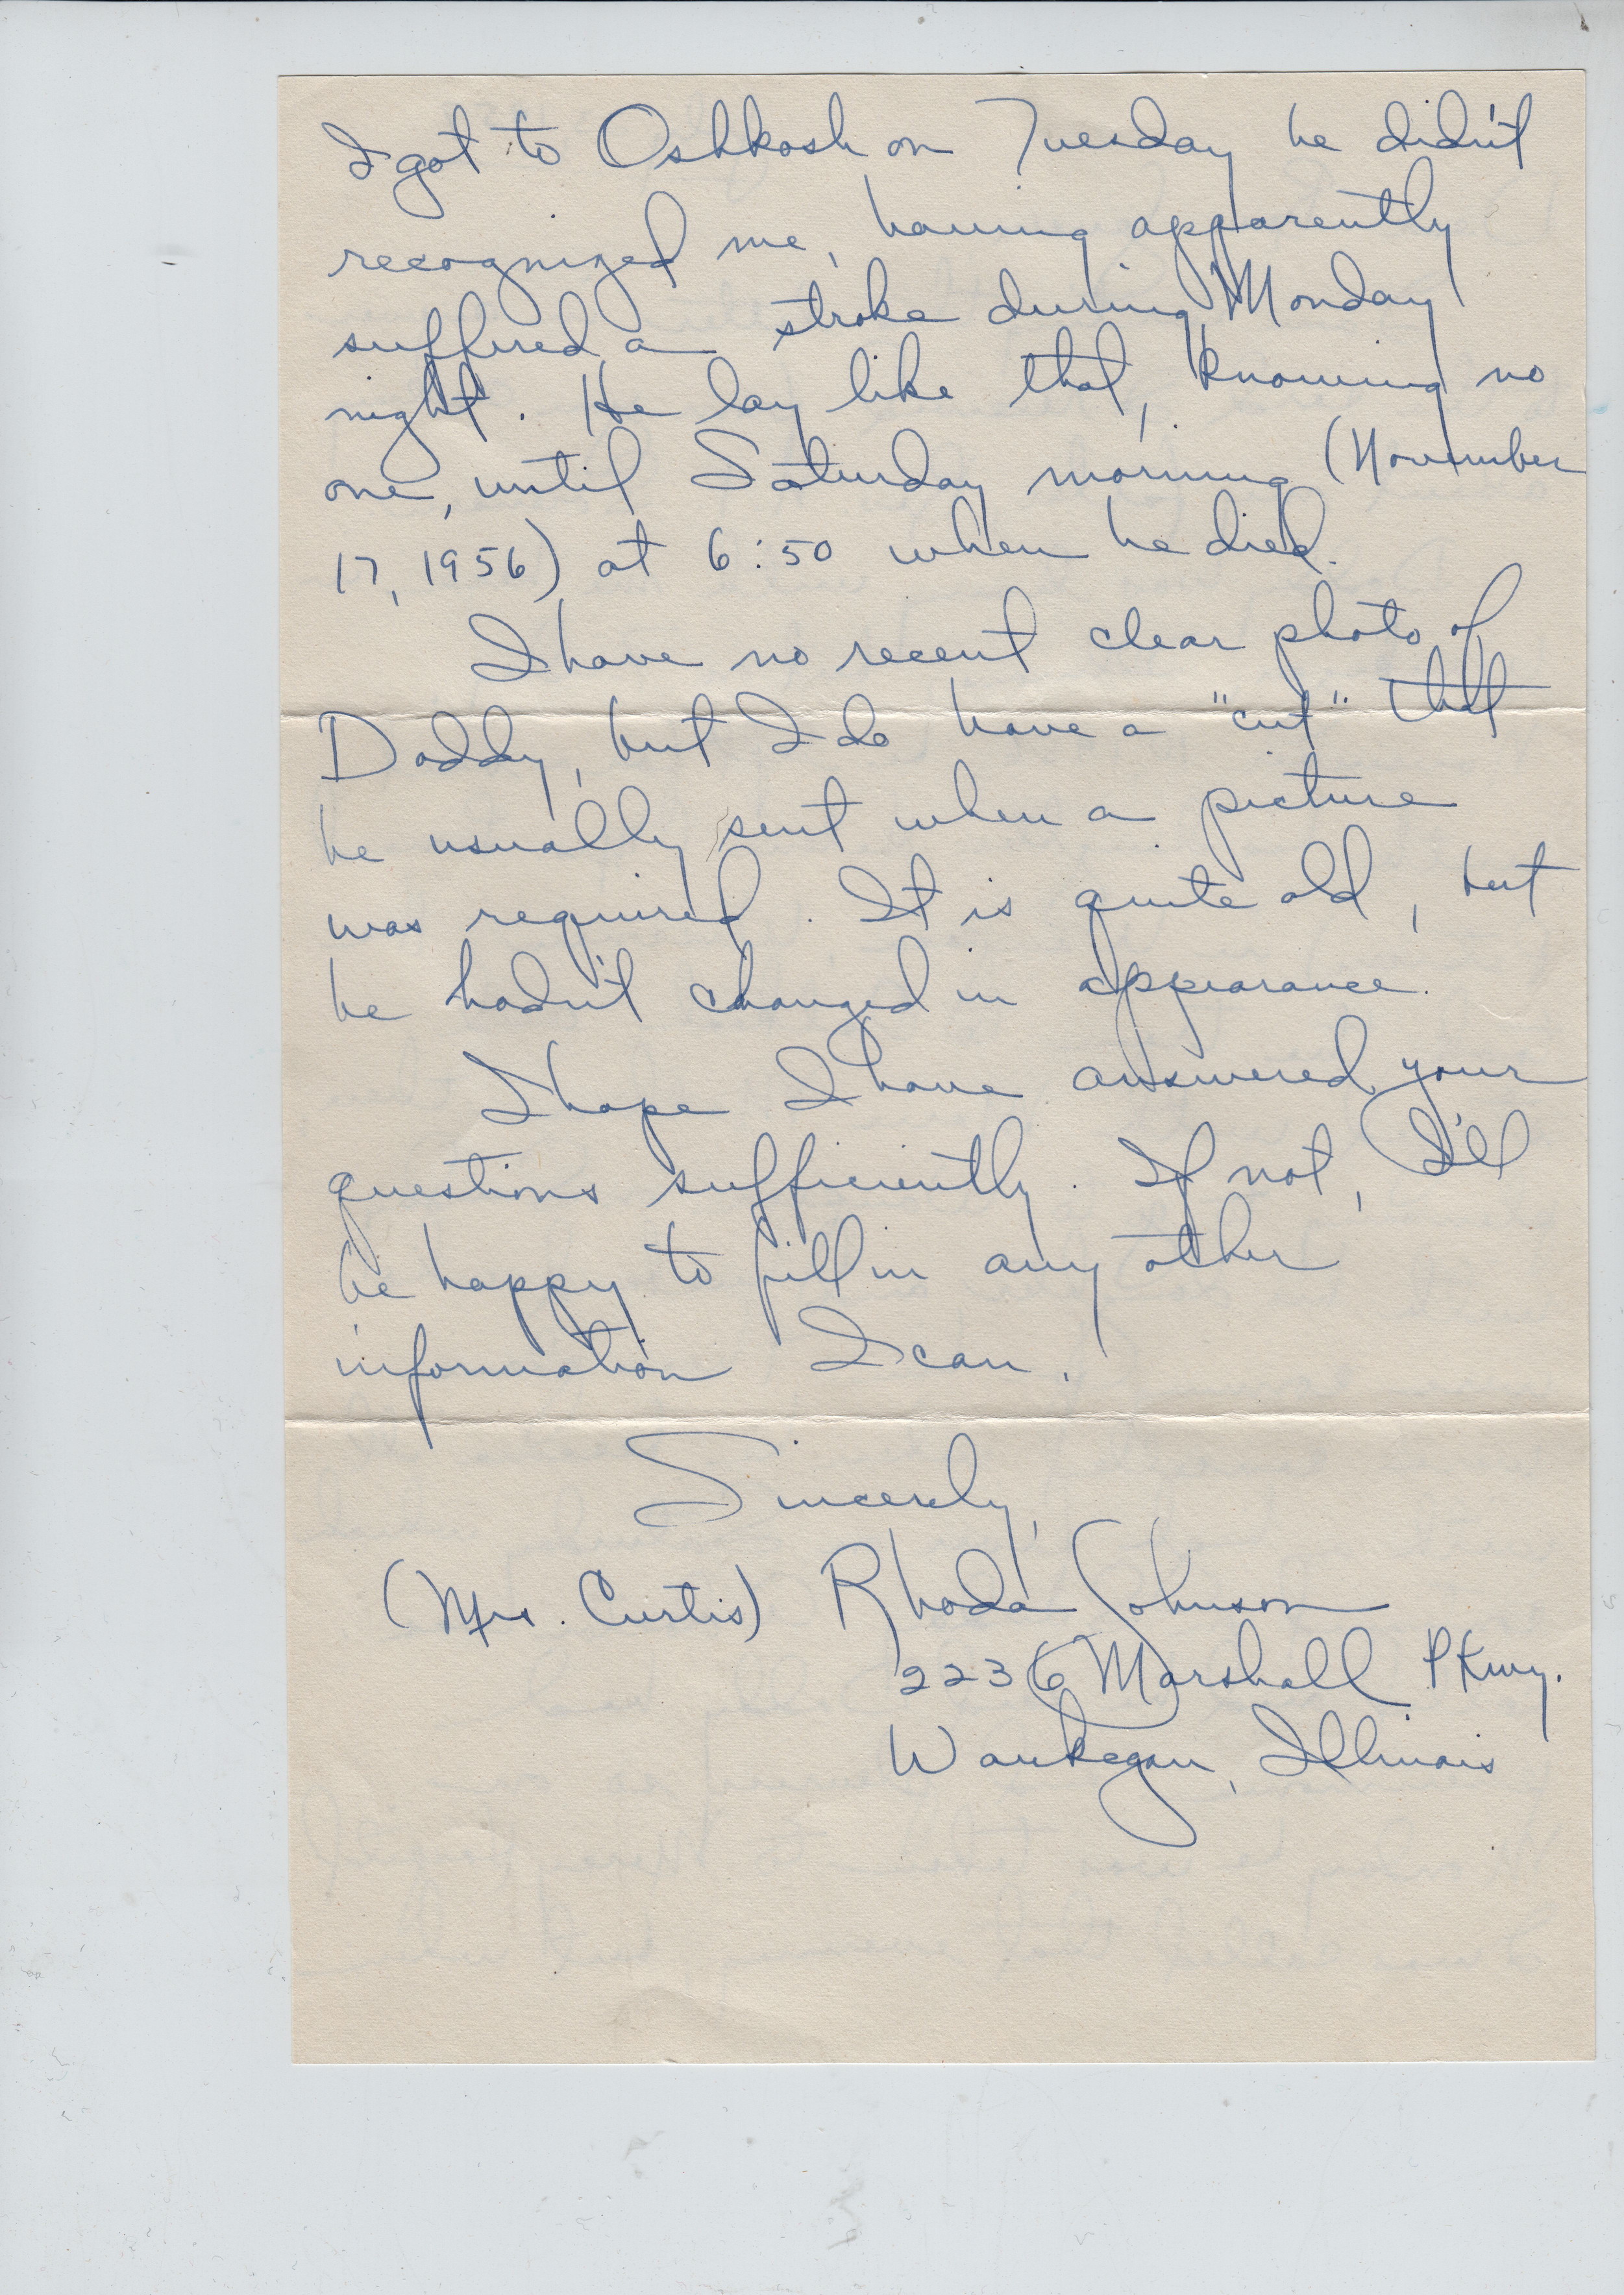 I got to Oshkosh on Tuesday he didn't
recognized me, having apparently
suffered a stroke during Monday
night. He lay like that, knowing no
one, until Saturday morning (November
17, 1956) at 6:50 when he died.
I have no recent clear photo of
Daddy, but I do have a "cut" that
he usually sent when a picture
was required. It is quite old, but
he hadn't changed in appearance.
I hope I have answered your
questions sufficiently. If not, I'll
be happy to fill in any other
information I can.
Sincerely,
(Mrs. Curtis) Rhoda Johnson
2236 Marshall Pkwy.
Waukegan, Illinois